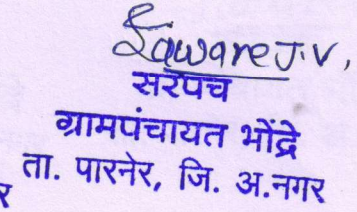 Laware J.V.,
सरपंच
ग्रामपंचायत भोंद्रे
ता. पारनेर, जि. अ.नगर
र